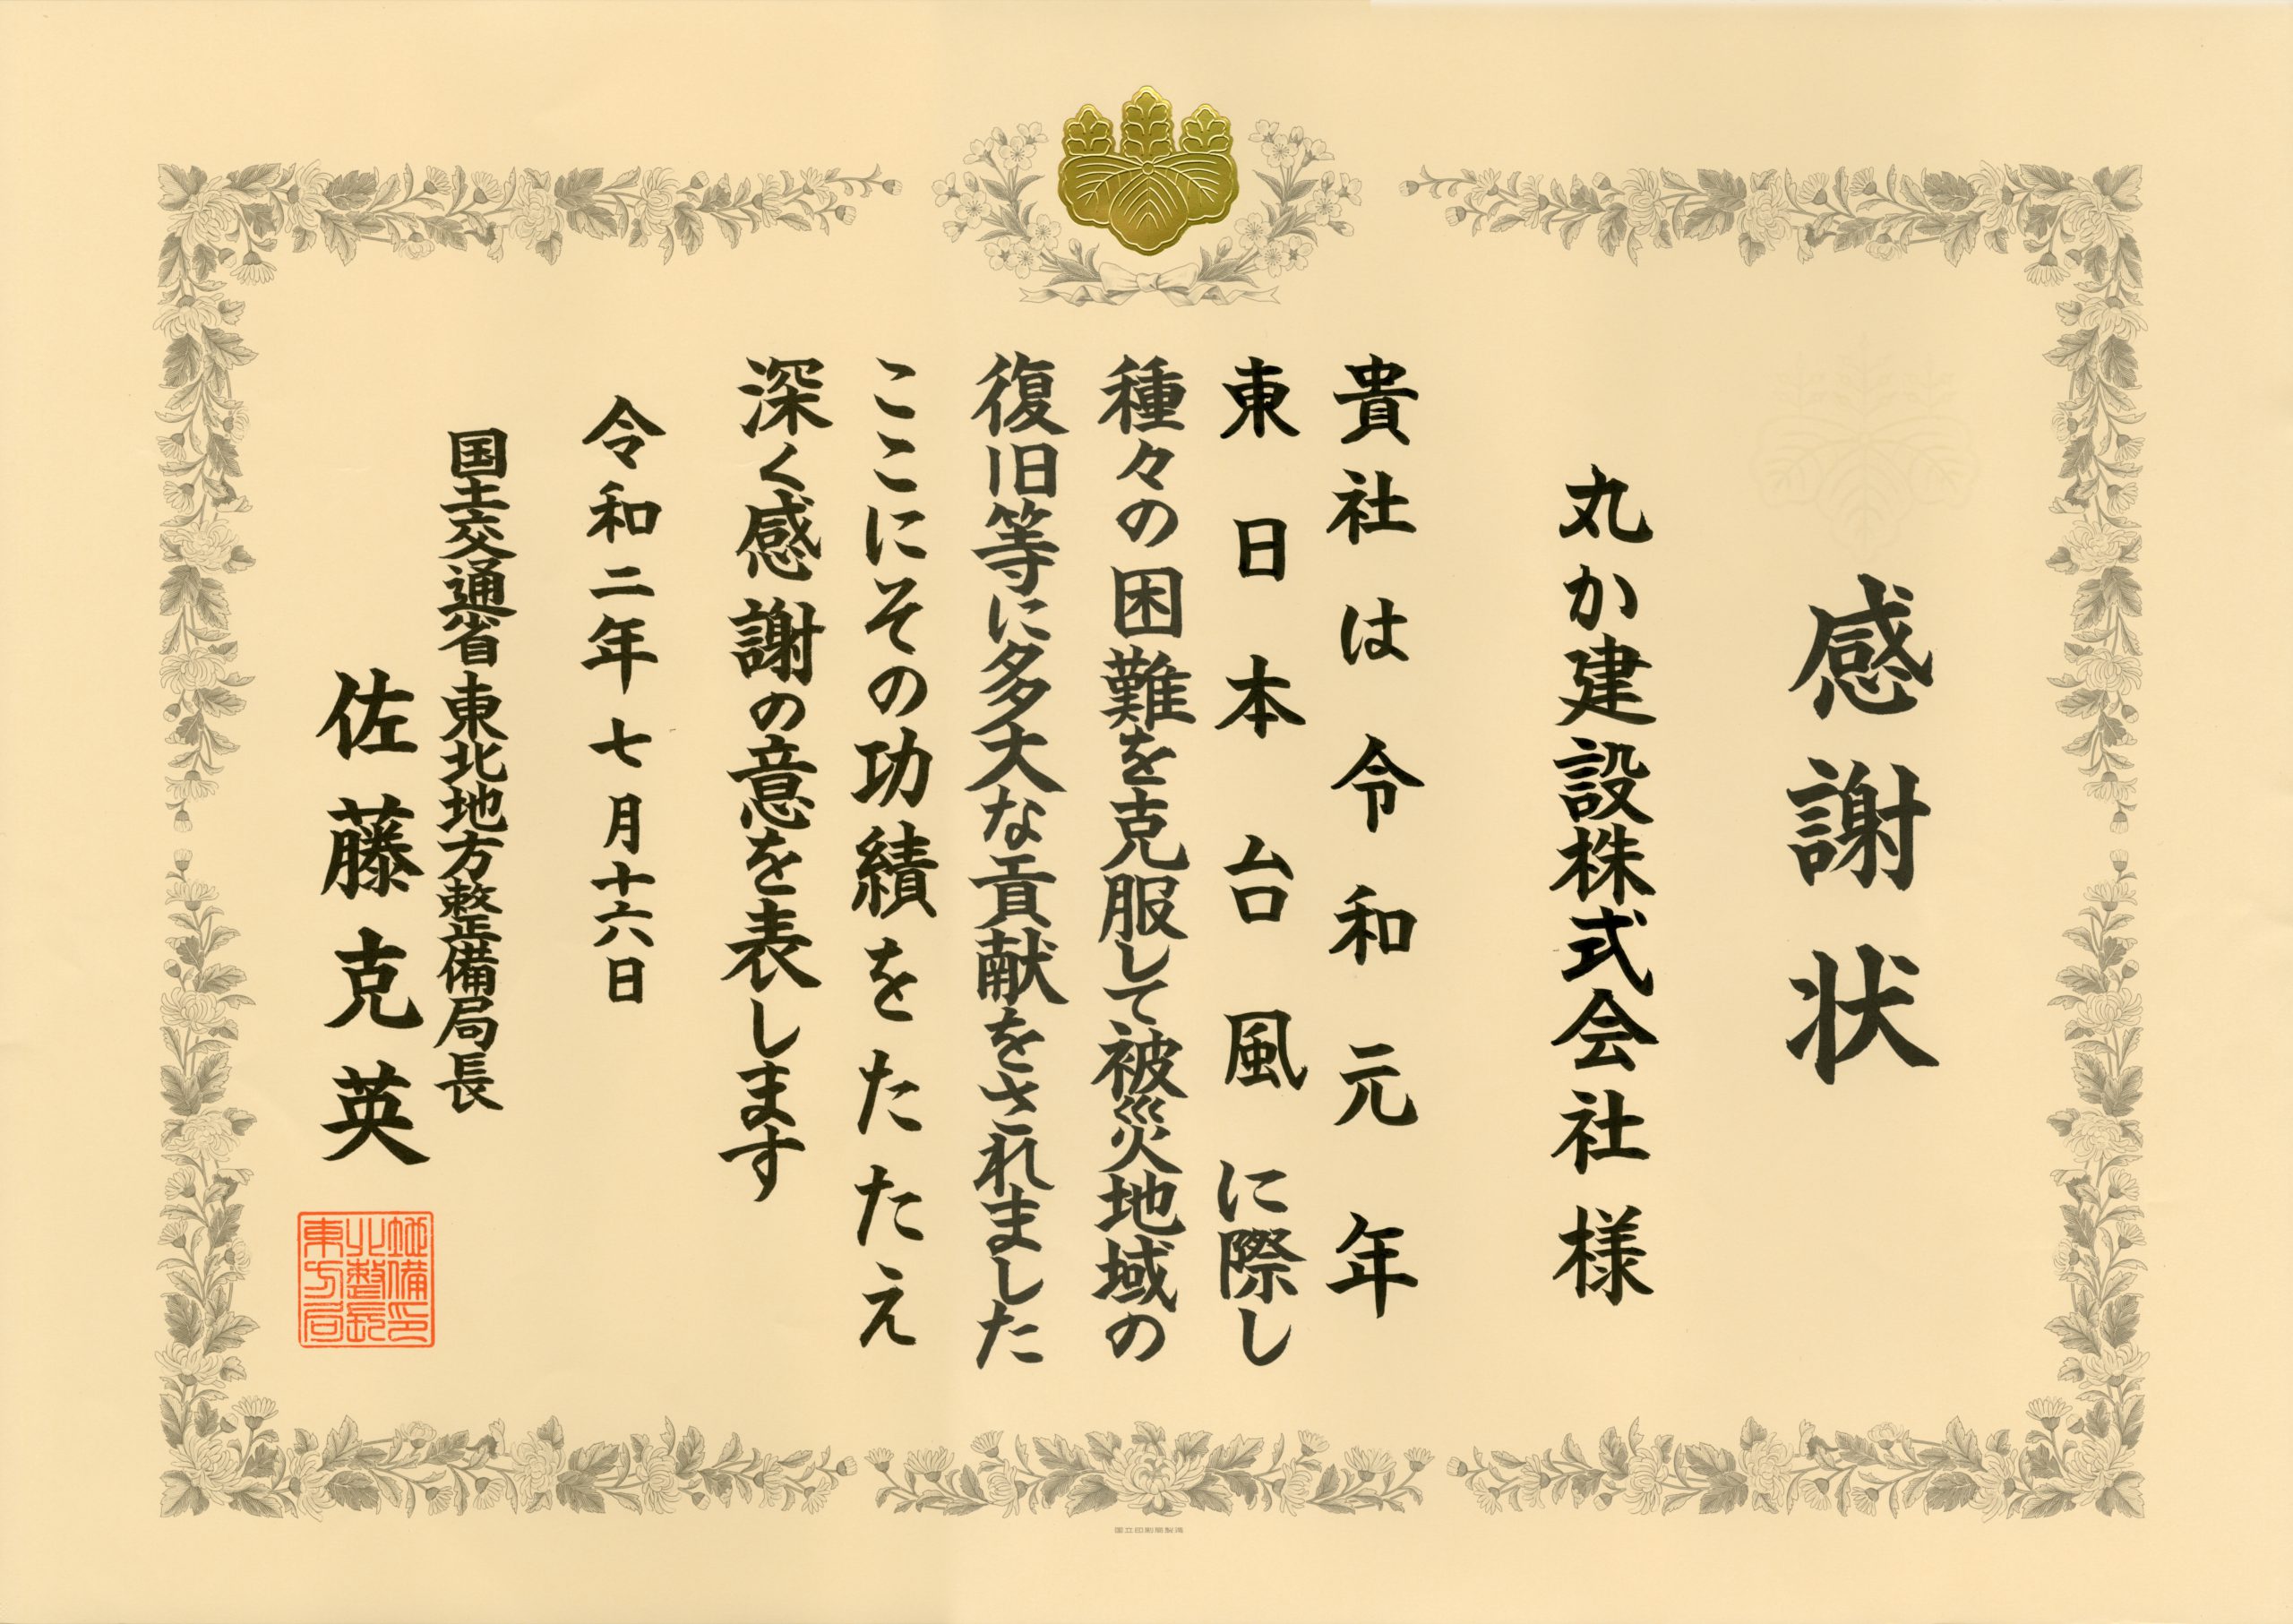 感謝状
丸か建設株式会社様
貴社は令和元年
東日本台風に際し
種々の困難を克服して被災地域の
復旧等に多大な貢献をされました
ここにその功績をたたえ
深く感謝の意を表します
令和二年七月十六日
国土交通省東北地方整備局長
佐藤克英
国立印刷局製造